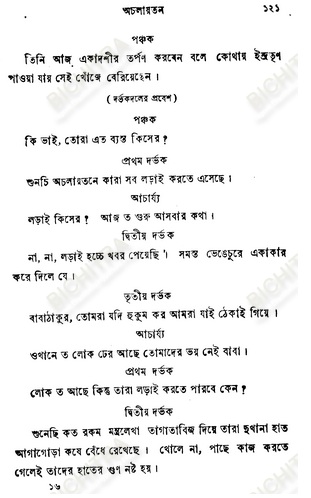 অচলায়তন ১২১
পঞ্চক
তিনি আজ একাদশীর তর্পণ করবেন বলে কোথায় ইন্দ্রতৃণ
পাওয়া যায় সেই খোঁজে বেরিয়েছেন।
( দর্ভকদলের প্রবেশ )
পঞ্চক
কি ভাই, তোরা এত ব্যস্ত কিসের ?
প্রথম দর্ভক
শুনচি অচলায়তনে কারা সব লড়াই করতে এসেছে।
আচার্য্য
লড়াই কিসের ? আজ ত গুরু আসবার কথা।
দ্বিতীয় দর্ভক
না, না, লড়াই হচ্চে খবর পেয়েছি। সমস্ত ভেঙেচুরে একাকার
করে দিলে যে।
তৃতীয় দর্ভক
বাবাঠাকুর, তোমরা যদি হুকুম কর আমরা যাই ঠেকাই গিয়ে।
আচার্য্য
ওখানে ত লোক ঢের আছে তোমাদের ভয় নেই বাবা।
প্রথম দর্ভক
লোক ত আছে কিন্তু তারা লড়াই করতে পারবে কেন ?
দ্বিতীয় দর্ভক
শুনেছি কত রকম মন্ত্রলেখা তাগাতাবিজ দিয়ে তারা দুখানা হাত
আগাগোড়া কষে বেঁধে রেখেছে। খোলে না, পাছে কাজ করতে
গেলেই তাদের হাতের গুণ নষ্ট হয়।
১৬
BICHITRA